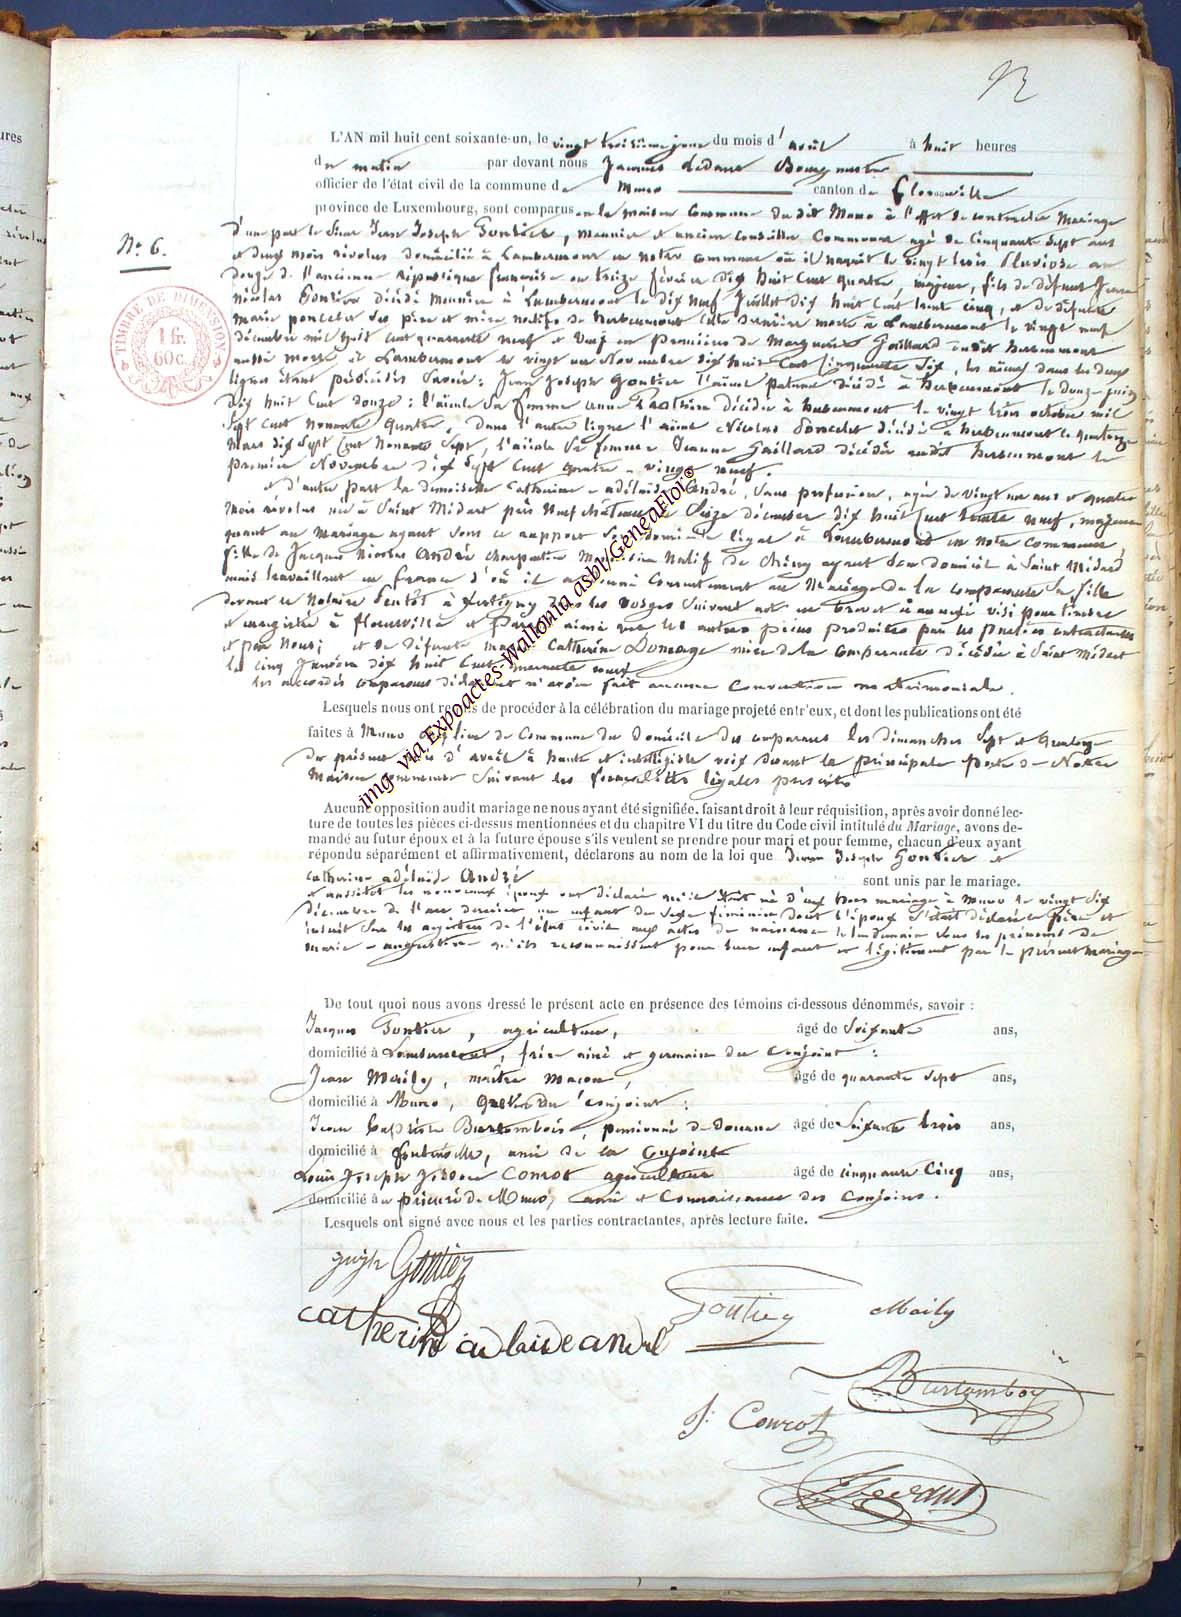 12
L'AN mil huit cent soixante-un, le vingt troisième jour du mois d'août à huit heures
du matin par devant nous Jacques Ledant Bourgmestre
officier de l'état civil de la commune de Muno canton de Florenville
province de Luxembourg, sont comparus en la maison Commune du dit Muno à l'effet de contracter Mariage
N° 6.
TIMBRE DE DIMENSION
1 fr.
60 c.
D'une part le Sieur Jean Joseph Gontier, meunier et ancien Conseiller Communal agé de Cinquante Sept ans
et deux mois révolus domicilié à Lambermont en notre commune où il naquit le vingt trois Pluviose an
douze de l'ancienne république française ou treize février dix huit Cent quatre, majeur, fils de défunt Jean
Nicolas Gontier décédé Meunier à Lambermont le dix neuf Juillet dix huit Cent trente cinq, et de défunte
Marie poncelet ses père et mère natifs de herbeumont cette dernière morte à Lambermont le vingt neuf
décembre mil huit cent quarante neuf et Veuf en premières de Marguerite Gaillard dudit herbeumont
aussi morte à Lambermont le vingt un Novembre dix huit Cent Cinquante Six, les aïeux dans les deux
lignes étant prédécédés Savoir : Jean Joseph Gontier l'aïeul paternel décédé à herbeumont le douze juin
dix huit Cent douze : l'aïeule Sa femme anne décédée à herbeumont le vingt trois octobre mil
Sept Cent Nonante quatre, dans l'autre ligne l'aïeul Nicolas Poncelet décédé à herbeumont le quatorze
Mars dix Sept Cent Nonante Sept, l'aïeule Sa femme Jeanne Gaillard décédée audit herbeumont le
premier Novembre dix Sept Cent quatre-vingt neuf.
et d'autre part la demoiselle Catherine-adélaïde André, Sans profession, agée de vingt un ans et quatre
mois révolus née à Saint Médart près Neufchâteau le Seize décembre dix huit Cent trente neuf, majeure
quant au Mariage ayant Sous ce rapport Son domicile légal à Lambermont en notre Commune
fille de Jacques Nicolas André Charpentier Natif de Chiny ayant Son domicile à Saint Médard
mais travaillant en france d'où il a donné Consentement au Mariage de la Comparante Sa fille
devant le Notaire à dans les Vosges Suivant acte en brevet ci annexé visé pour timbre
et enregistré à florenville et ainsi que les autres pièces produites par les parties contractantes
et par Nous ; et de défunte Marie Catherine mère de la Comparante décédée à Saint Médart
le cinq Janvier dix huit Cent quarante neuf
les accordés comparans déclarent n'avoir fait aucune Convention matrimoniale.
Lesquels nous ont requis de procéder à la célébration du mariage projeté entr'eux, et dont les publications ont été
faites à Muno de Commune du domicile des comparans les dimanches Sept et quatorze
du présent mois d'août à haute et intelligible voix devant la principale porte de Notre
Maison Commune Suivant les formalités légales prescrites
Aucune opposition audit mariage ne nous ayant été signifiée, faisant droit à leur réquisition, après avoir donné lec-
ture de toutes les pièces ci-dessus mentionnées et du chapitre VI du titre du Code civil intitulé du Mariage, avons de-
mandé au futur époux et à la future épouse s'ils veulent se prendre pour mari et pour femme, chacun d'eux ayant
répondu séparément et affirmativement, déclarons au nom de la loi que Jean Joseph Gontier et
Catherine adélaïde André sont unis par le mariage.
et aussitôt les nouveaux époux ont déclaré qu'il était né d'eux hors mariage à Muno le vingt Six
décembre de l'an dernier un enfant du Sexe féminin dont l'époux S'était déclaré le père et
inscrit Sur les registres de l'état civil aux actes de naissance le lendemain Sous les prénoms de
Marie-augustine qu'ils reconnaissent pour leur enfant et légitiment par le présent mariage
De tout quoi nous avons dressé le présent acte en présence des témoins ci-dessous dénommés, savoir :
Jacques Gontier, agriculteur, âgé de Soixante ans,
domicilié à Lambermont, frère aîné et germain du Conjoint :
Jean Maily, maître maçon, âgé de quarante Sept ans,
domicilié à Muno, du Conjoint :
Jean Baptiste Burtomboy, pensionné de Douane âgé de Soixante trois ans,
domicilié à fontenoille, ami de la Conjointe
Louis Joseph Conrot agriculteur âgé de cinquante Cinq ans,
domicilié à prieuré de Muno, ami et Connaissance des Conjoins.
Lesquels ont signé avec nous et les parties contractantes, après lecture faite.
joseph Gontier
Catherine adelaide andré
Gontier
Maily
Burtomboy
J: Conrot
J Ledant
img via Expoactes-Wallonia asbl/GeneaFlor©